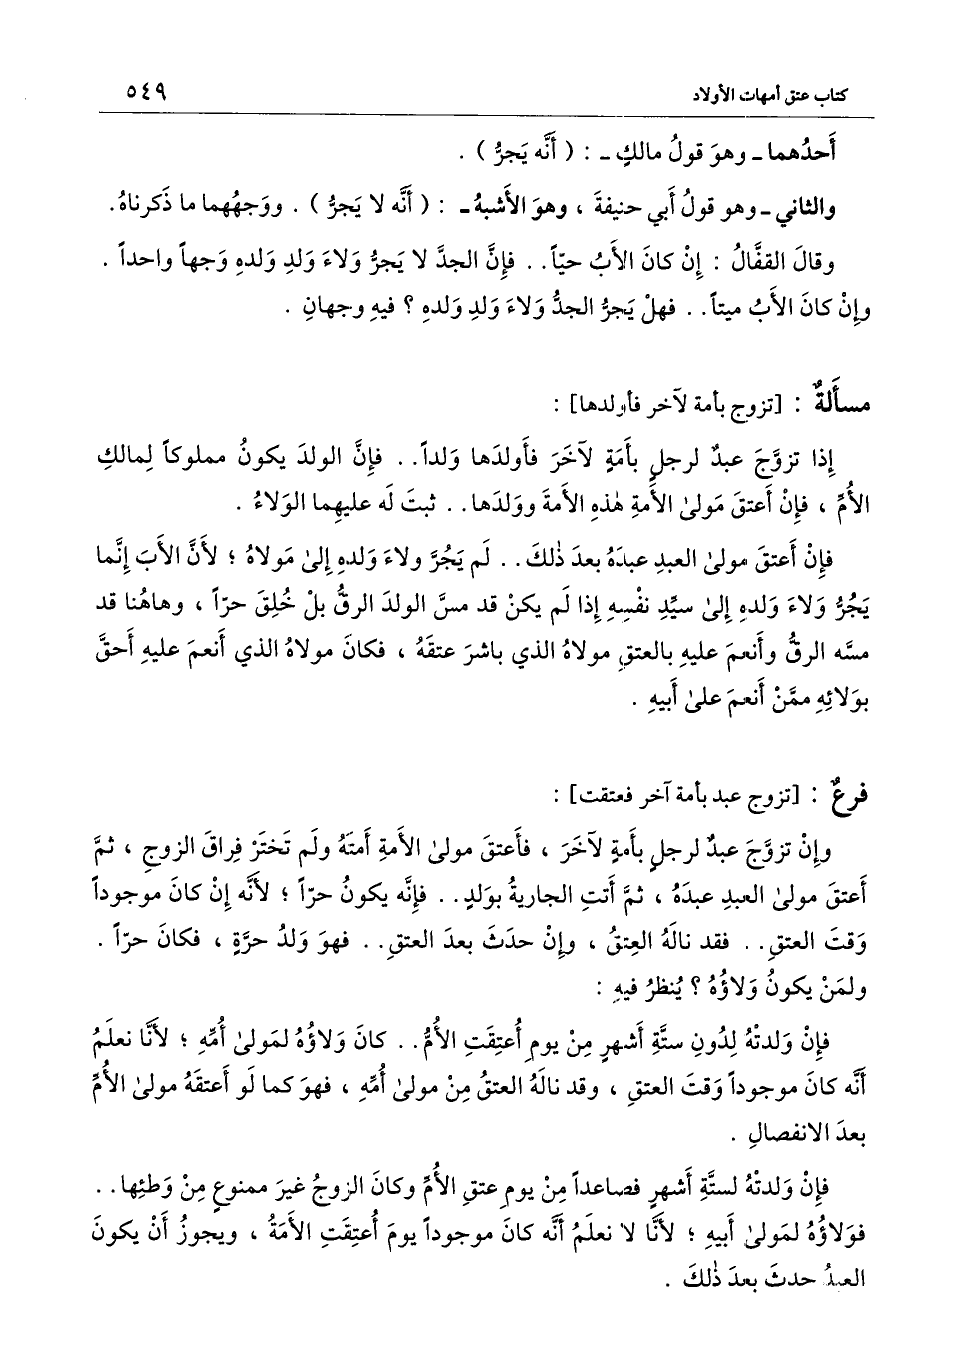 كتاب عتق أمهات الأولاد ٥٤٩
أَحدُهما ـ وهوَ قولُ مالكٍ ـ : ( أَنَّه يَجرُّ ) .
والثاني ـ وهو قولُ أبي حنيفةَ ، وهوَ الأَشبهُ ـ : ( أَنَّه لا يَجرُّ ) . ووَجهُهما ما ذَكرناهُ .
وقالَ القفَّالُ : إِنْ كانَ الأَبُ حيّاً . . فإِنَّ الجدَّ لا يَجرُّ وَلاءَ وَلدِ وَلدهِ وَجهاً واحداً .
وإِنْ كانَ الأَبُ ميتاً . . فهلْ يَجرُّ الجدُّ وَلاءَ وَلدِ وَلدهِ ؟ فيهِ وجهانِ .
مسأَلةٌ : [تزوج بأمة لآخر فأولدها] :
إِذا تزوَّجَ عبدٌ لرجلٍ بأَمَةٍ لآخَرَ فأَولدَها وَلداً . . فإِنَّ الولدَ يكونُ مملوكاً لِمالكِ
الأُمِّ ، فإِنْ أَعتقَ مَولىٰ الأَمةِ هٰذهِ الأَمةَ ووَلدَها . . ثبتَ لَه عليهِما الوَلاءُ .
فإِنْ أَعتقَ مولىٰ العبدِ عبدَهُ بعدَ ذٰلكَ . . لَم يَجُرَّ ولاءَ وَلدهِ إِلىٰ مَولاهُ ؛ لأَنَّ الأَبَ إِنَّما
يَجُرُّ وَلاءَ وَلدهِ إِلىٰ سيِّدِ نفْسِهِ إِذا لَم يكنْ قد مسَّ الولدَ الرقُّ بلْ خُلِقَ حرّاً ، وهاهُنا قد
مسَّه الرقُّ وأَنعمَ عليهِ بالعتقِ مولاهُ الذي باشرَ عتقَهُ ، فكانَ مولاهُ الذي أَنعمَ عليهِ أَحقَّ
بوَلائِهِ ممَّنْ أَنعمَ علىٰ أَبيهِ .
فرعٌ : [تزوج عبد بأمة آخر فعتقت] :
وإِنْ تزوَّجَ عبدٌ لرجلٍ بأَمةٍ لآخَرَ ، فأَعتقَ مولىٰ الأَمةِ أَمتَهُ ولَم تَخترْ فِراقَ الزوجِ ، ثمَّ
أَعتقَ مولىٰ العبدِ عبدَهُ ، ثمَّ أَتتِ الجاريةُ بوَلدٍ . . فإِنَّه يكونُ حرّاً ؛ لأَنَّه إِنْ كانَ موجوداً
وَقتَ العتقِ . . فقد نالَهُ العِتقُ ، وإِنْ حدَثَ بعدَ العتقِ . . فهوَ وَلدُ حرَّةٍ ، فكانَ حرّاً .
ولمَنْ يكونُ وَلاؤُهُ ؟ يُنظرُ فيهِ :
فإِنْ وَلدتْهُ لِدُونِ ستَّةِ أَشهرٍ مِنْ يومِ أُعتِقَتِ الأُمُّ . . كانَ وَلاؤُهُ لمَولىٰ أُمِّهِ ؛ لأَنَّا نعلَمُ
أَنَّه كانَ موجوداً وَقتَ العتقِ ، وقد نالَهُ العتقُ مِنْ مولىٰ أُمِّهِ ، فهوَ كما لَو أَعتقَهُ مولىٰ الأُمِّ
بعدَ الانفصالِ .
فإِنْ وَلدتْهُ لستَّةِ أَشهرٍ فصاعداً مِنْ يومِ عتقِ الأُمِّ وكانَ الزوجُ غيرَ ممنوعٍ مِنْ وَطئِها . .
فوَلاؤُهُ لمَولىٰ أَبيهِ ؛ لأَنَّا لا نعلَمُ أَنَّه كانَ موجوداً يومَ أُعتِقَتِ الأَمَةُ ، ويجوزُ أَنْ يكونَ
العبدُ حدثَ بعدَ ذٰلكَ .